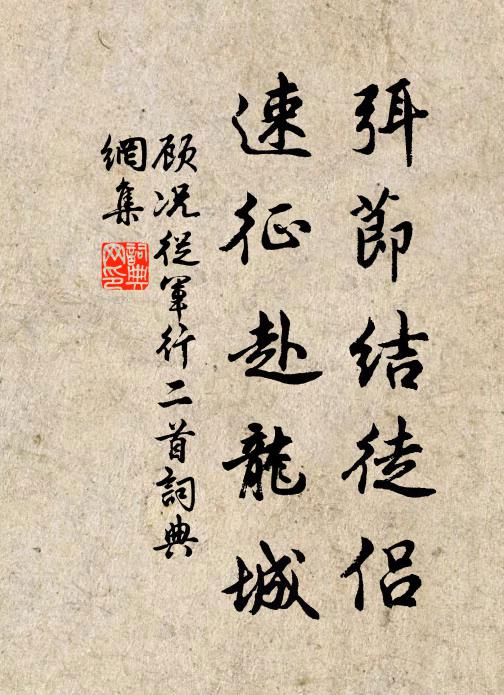 弭節結徒侶
速征赴龍城
顾况從軍行二首詞典
網集
詞典網印